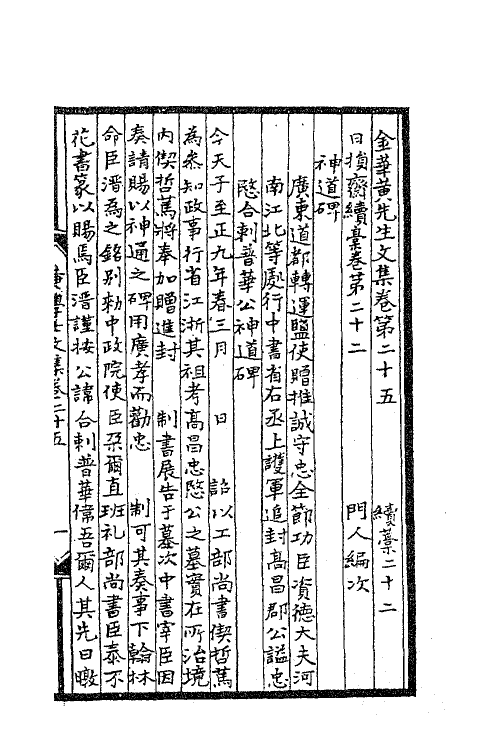 金華黄先生文集卷第二十五　續藁二十二
日損齋續藁卷第二十二　門人編次
神道碑
廣東道都轉運鹽使贈推誠守忠全節功臣資德大夫河
南江北等處行中書省右丞上護軍追封髙昌郡公謚忠
愍合剌普華公神道碑
今天子至正九年春三月　日　詔以工部尚書偰哲篤
為叅知政事行省江浙其祖考髙昌忠愍公之墓實在所治境
内偰哲篤將奉加贈進封　制書展告于墓次中書宰臣因
奏請賜以神道之碑用廣孝而勸忠　制可其奏事下翰林
命臣溍為之銘别勑中政院使臣朶爾直班礼部尚書臣泰不
花書篆以賜焉臣溍謹按公諱合剌普華偉吾爾人其先曰暾
黄學士文集卷二十五
一